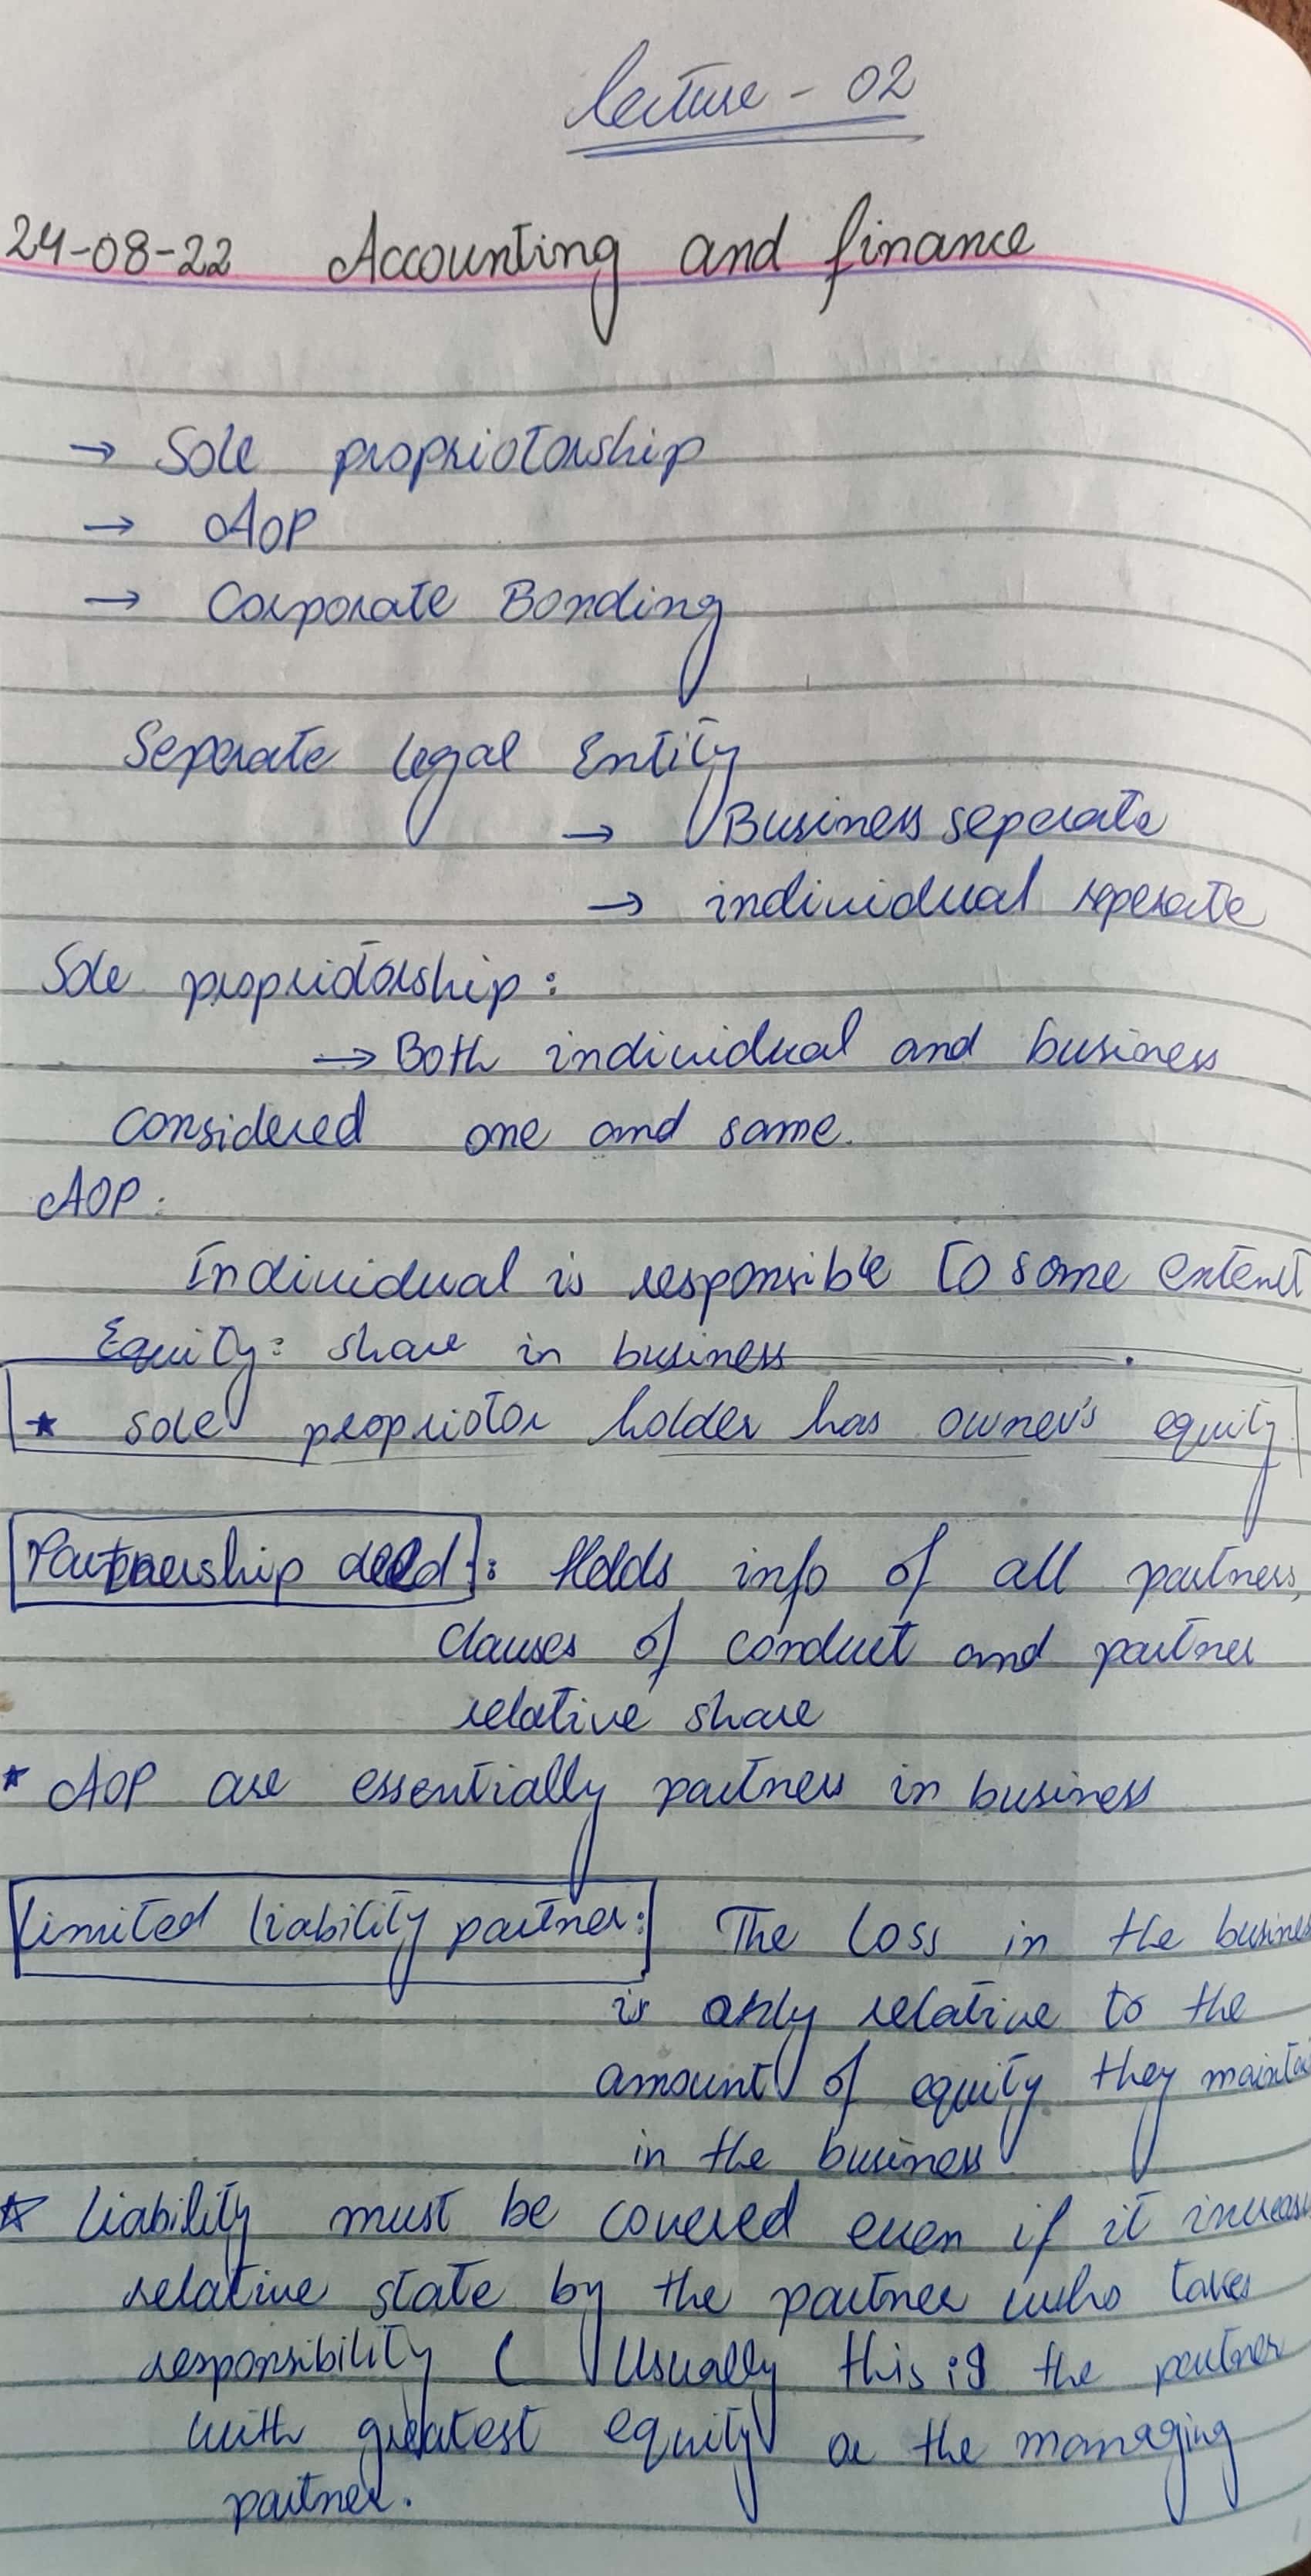 Lecture - 02
24-08-22 Accounting and finance
→ Sole propriotorship
→ AOP
→ Corporate Bonding
Seperate legal Entity
→ Business seperate
→ individual seperate
Sole propriotorship :
→ Both individual and business
considered one and same.
AOP :
Individual is responsible to some extent
Equity : share in business
★ Sole propriotor holder has owner's equity
Partnership deed : Holds info of all partners,
clauses of conduct and partner
relative share
* AOP are essentially partners in business
Limited liability partner : The loss in the busines
is only relative to the
amount of equity they
in the business
☆ Liability must be covered even if it
relative state by the partner who takes
responsibility ( Usually this is the partner
with greatest equity or the managing
partner.